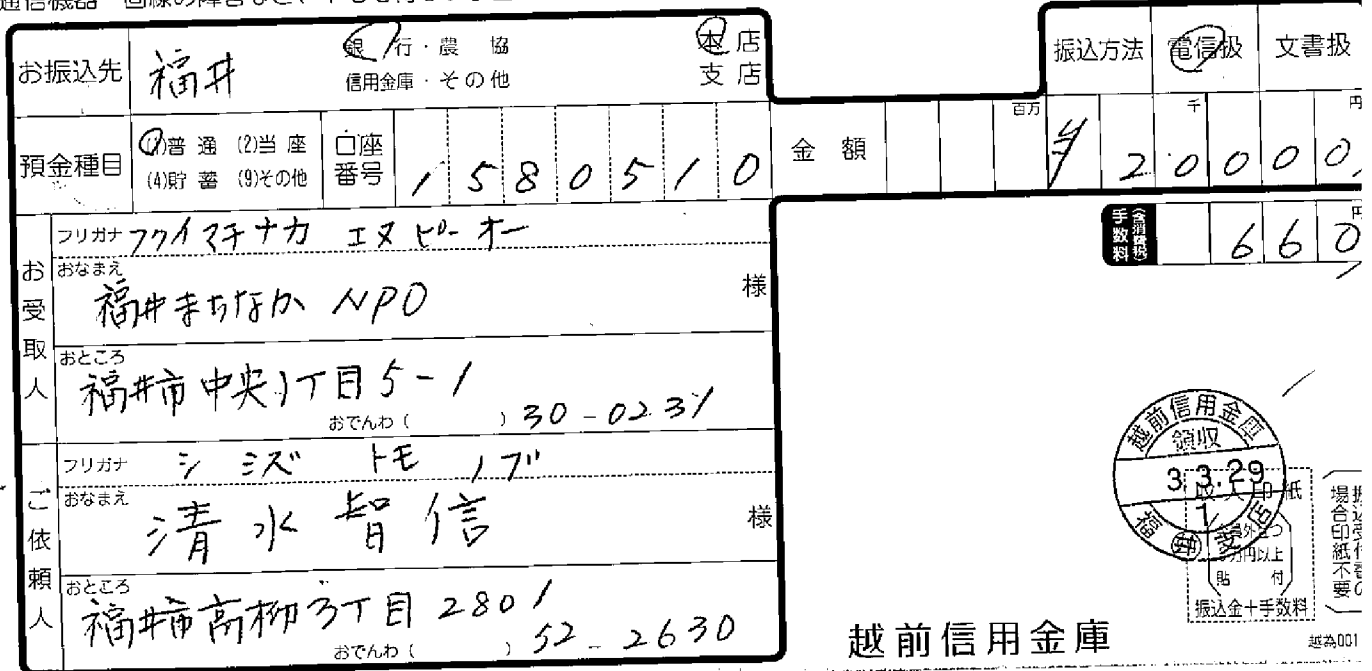 お振込先 福井 銀行・農協 本店 振込方法 電信扱 文書扱
信用金庫・その他 支店
預金種目 (1)普通 (2)当座 口座 1580510 金額 百万 千 円
(4)貯蓄 (9)その他 番号 ¥20000
手数料 (含消費税) 円 660
お受取人
フリガナ フクイマチナカ エヌピーオー
おなまえ
福井まちなか NPO 様
おところ
福井市中央1丁目5-1
おでんわ( ) 30-0231
ご依頼人
フリガナ シミズ トモノブ
おなまえ
清水智信 様
おところ
福井市高柳3丁目2801
おでんわ( ) 52-2630
越前信用金庫
領収
3.3.29
1
収入印紙
円以上
貼付
振込金+手数料
場合印紙不要
越前信用金庫
越為001